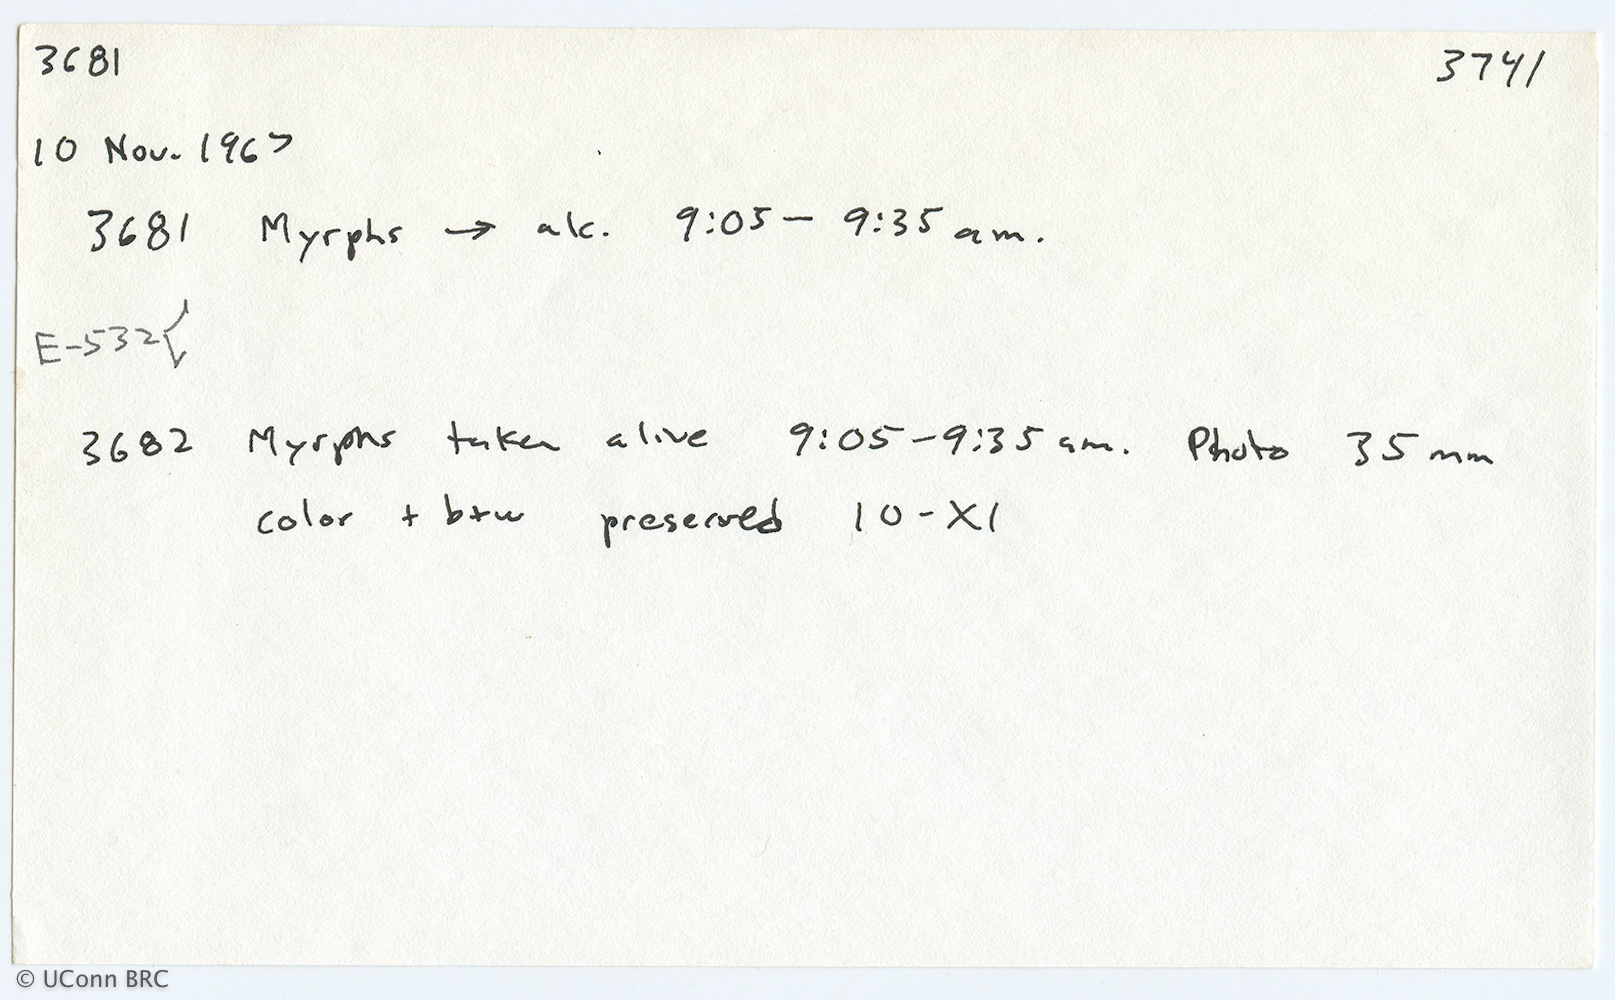 3681 3741
10 Nov. 1967
3681 Myrphs → alc. 9:05 – 9:35 am.
E-532{
3682 Myrphs taken alive 9:05 – 9:35 am. Photo 35 mm
color + b+w preserved 10-XI
© UConn BRC